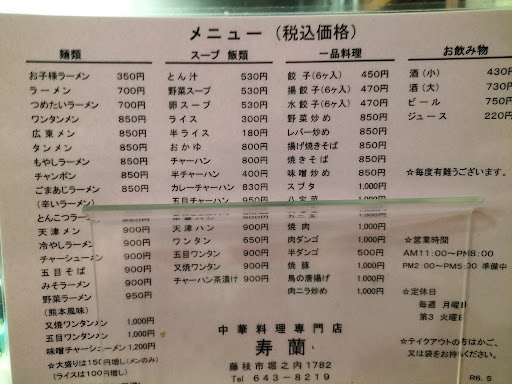 メニュー（税込価格）
麺類
お子様ラーメン 350円
ラーメン 700円
つめたいラーメン 700円
ワンタンメン 850円
広東メン 850円
タンメン 850円
もやしラーメン 850円
チャンポン 850円
ごまあじラーメン 850円
（辛いラーメン）
とんこつラーメン
天津メン 900円
冷やしラーメン 900円
チャーシューメン 900円
五目そば 900円
みそラーメン 900円
野菜ラーメン 950円
（熊本風味）
又焼ワンタンメン 1,000円
五目ワンタンメン 1,000円
味噌チャーシューメン 1,200円
☆大盛りは150円増し（メンのみ）
（ライスは100円増し）
スープ 飯類
とん汁 530円
野菜スープ 530円
卵スープ 530円
ライス 300円
半ライス 180円
おかゆ 800円
チャーハン 800円
半チャーハン 400円
カレーチャーハン 830円
五目チャーハン 950円
天津ハン 900円
ワンタン 650円
五目ワンタン 900円
又焼ワンタン 900円
チャーハン茶漬け 900円
一品料理
餃子（6ヶ入） 450円
揚餃子（6ヶ入） 470円
水餃子（6ヶ入） 470円
野菜炒め 850円
レバー炒め 850円
揚げ焼きそば 850円
焼きそば 850円
味噌炒め 850円
スブタ 1,000円
八宝菜
焼肉 1,000円
肉ダンゴ 1,000円
半ダンゴ 500円
焼豚 1,000円
鳥の唐揚げ 1,000円
肉ニラ炒め 1,000円
お飲み物
酒（小） 430円
酒（大） 730円
ビール 750円
ジュース 220円
☆毎度有難うございます。
☆営業時間
AM11:00～PM8:00
PM2:00～PM5:00 準備中
☆定休日
毎週 月曜日
第3 火曜日
☆テイクアウトの方はかご、
又は袋をお持ちください。
中華料理専門店
寿蘭
藤枝市堀之内1782
Tel 643-8219
R6.5